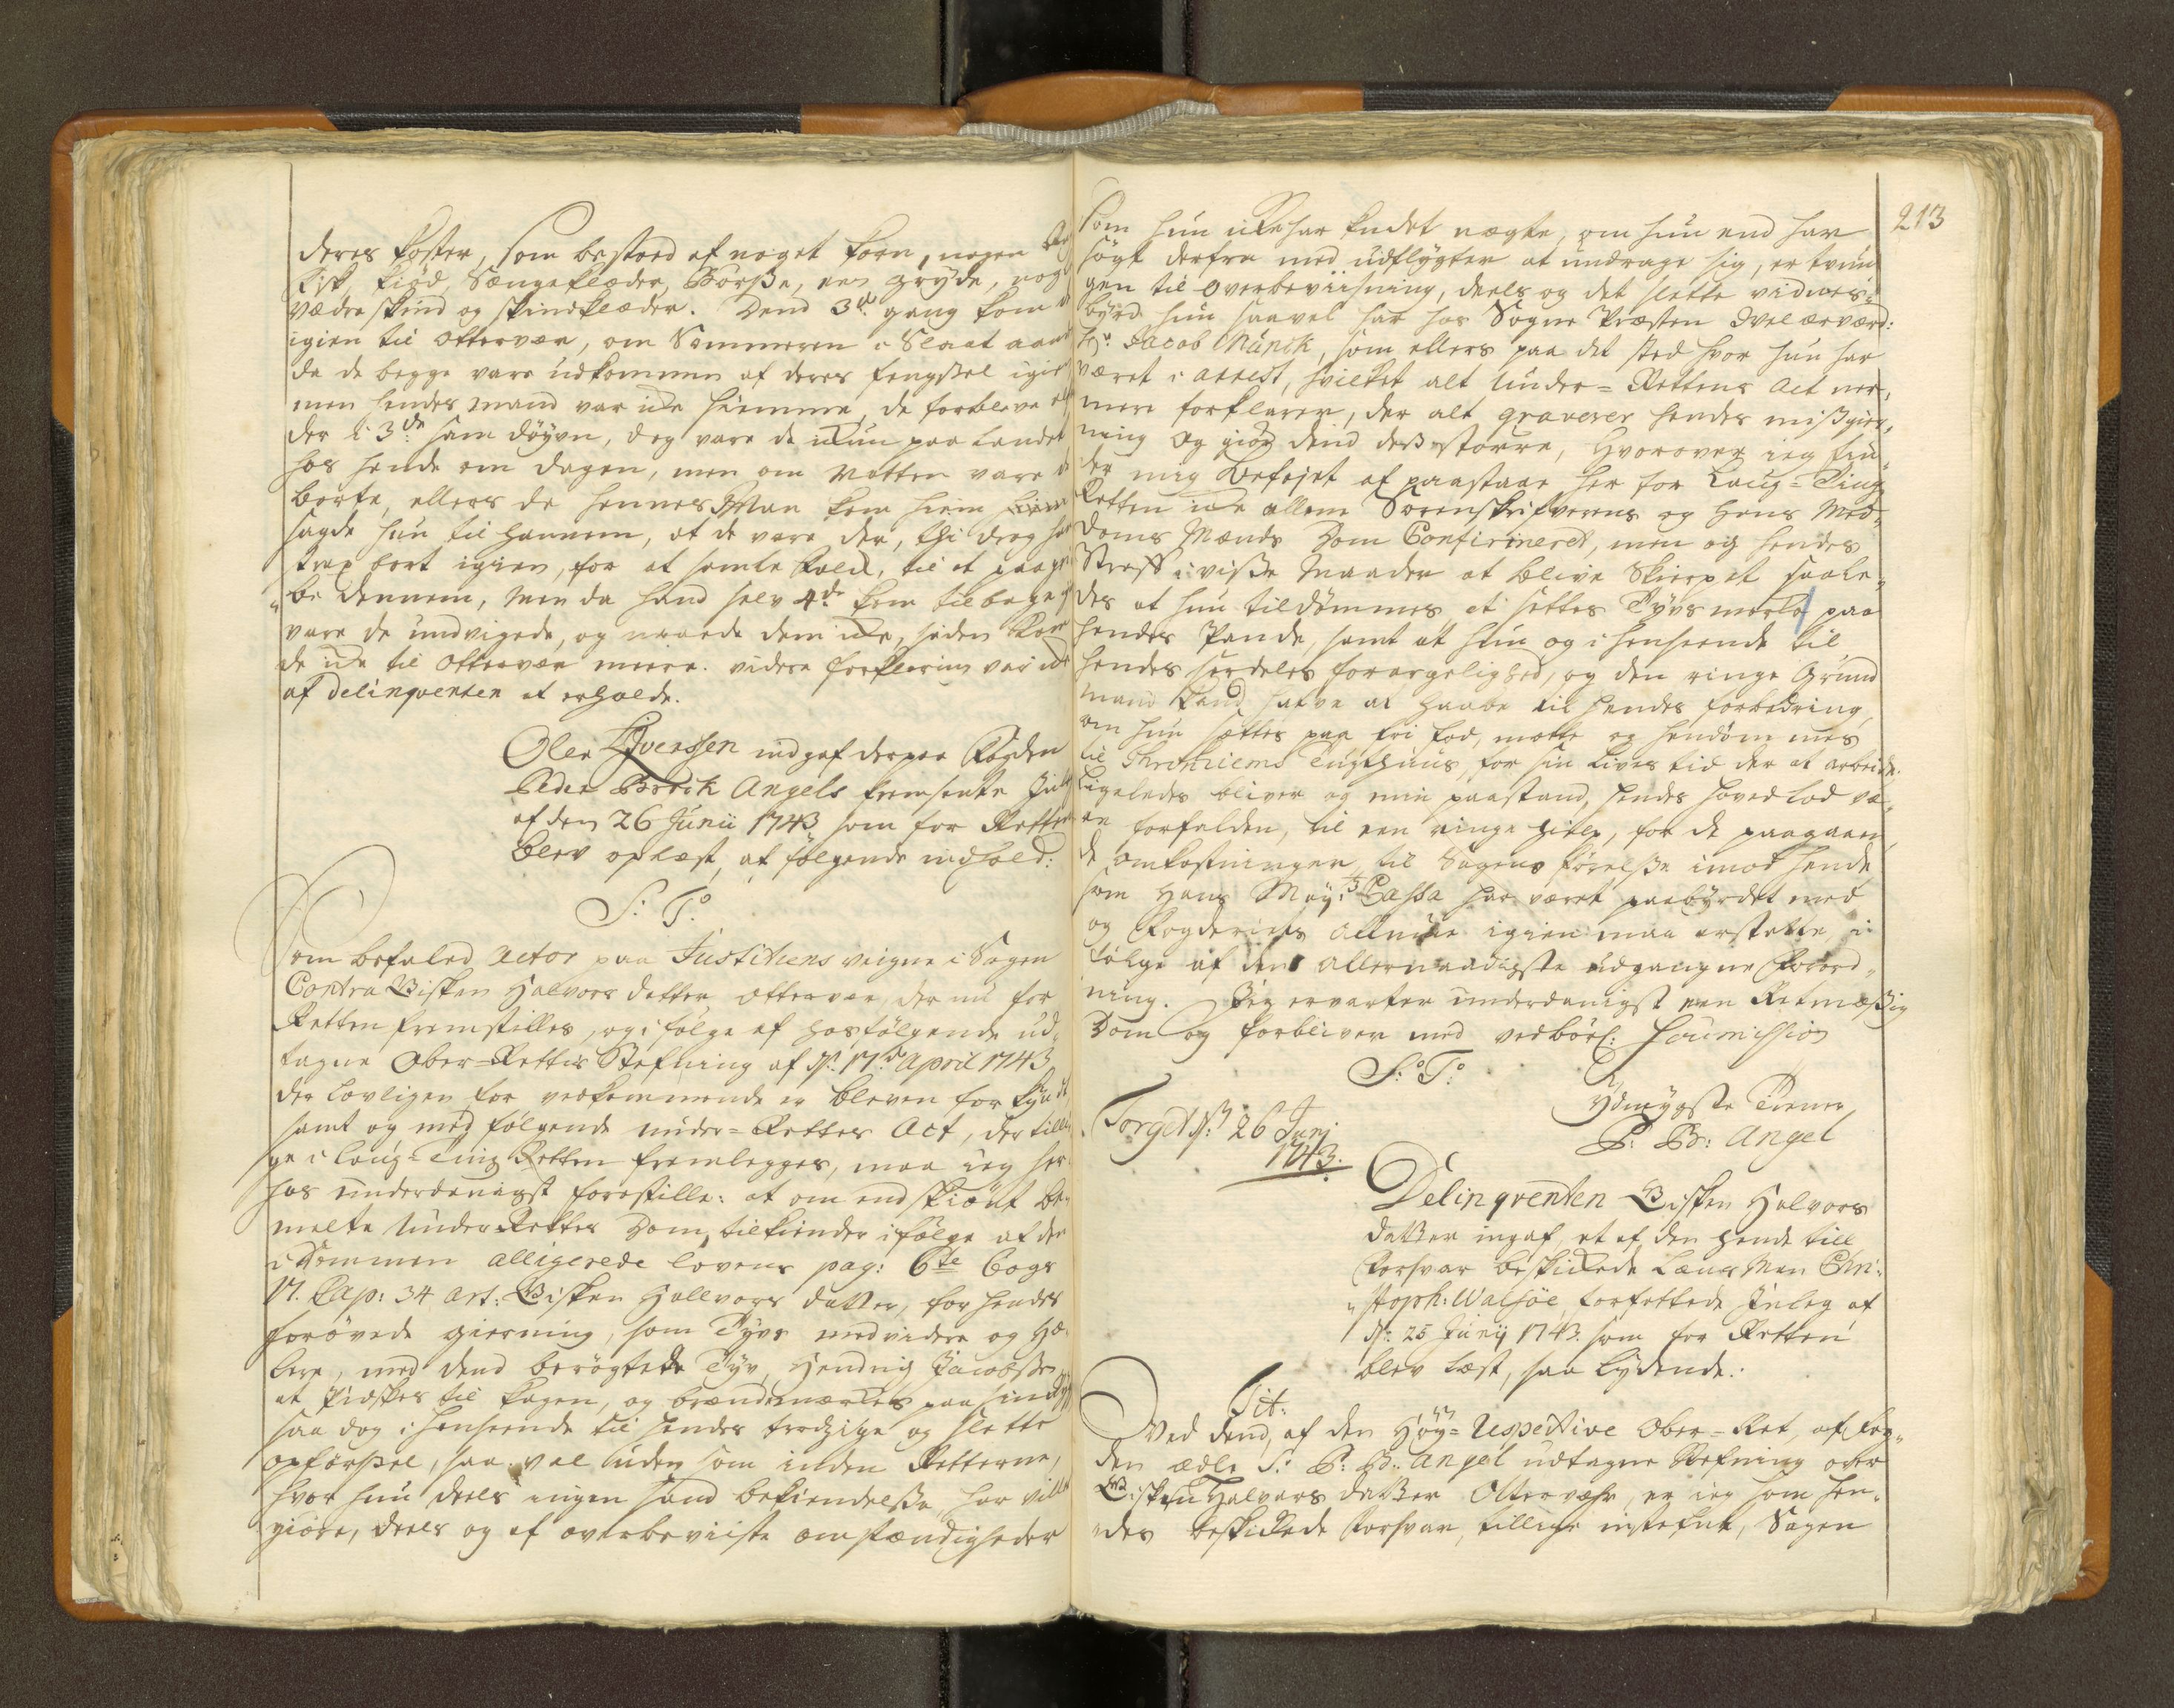 deres koster, som bestoed af noget korn, nogen
fisk, kiød, Sængeklæder, Børsse, een gryde, nog
vædreskind og skindklæder. Dend 3de gang kom de
igien til Ottervær, om Sommeren i Slaat aan
da de begge vare udkommen af deres fengssel igien
men hendes mand var icke hiemme, de forbleve
der i 3de sam døyen, dog vare de ickun paa Landet
hos hende om dagen, men om Natten vare de
borte, ellers da hennes Man kom hiem
sagde hun til hannem, at de vare der, thi drog han
strax bort igien, for at samle Folck, til at paagri-
be dennem, Men da hand selv 4de kom tilbage
vare de undvigede, og naaede dem icke, siden kom
de icke til Ottervær meere. videre forklaring var icke
af Delinqventen at erholde.
Ole Iverssen indgaf derpaa Fogden
Peder Borck Angels fremsente Inl
af den 26 Junii 1743 som for Retten
blev oplæst, af følgende indhold:
S: T:
Som befaled Actor paa Justitiens veigne i Sagen
Contra Lisken Halvors datter Ottervær, der nu for
Retten fremstilles, og i følge af hosfølgende ud-
tagne Ober-Rettes Stefning af D: 17de April 1743
der Lovligen for vedkommende er bleven forkyndt
samt og med følgende under-Rettes Act, der tilli-
ge i Laug-Ting Retten fremlegges, maa ieg her-
hos underdanigst forestille: at om end skiønt be-
melte Under Rettes Dom, tilkiender i følge af den
i Dommen alligerede lovens pag: 6te Bogs
17. Cap: 34 art: Lisken Hallvors datter, for hendes
forøvede gierning, som Tyvs medvidere og Hæ-
lere, med dend berøgtede Tyv, Hendrich Jacobssen
at Pidskes til kagen, og brændemærckes paa sin Ryg
saa dog i henseende til hendes trodzige og slette
opførssel, saa vel uden som inden Retterne,
hvor hun deels ingen sand bekiendelsse, har villet
giøre, deels og af overbeviiste omstændigheder
213
Som hun icke har kundet nægte, om hun end har
søgt derfra med udflygter at undrage sig, er tvun-
gen til overbeviisning, deels og det slette vidnes-
byrd hun saavel har hos Sogne Præsten Velærværd:
Hr: Jacob Munch, som ellers paa det sted hvor hun har
været i arrest, hvilket alt Under-Rettens Act ner-
mere forklarer, der alt graverer hendes missgier-
ning og giør dend dess større, Hvorover ieg fin-
der mig Befojet at paastaae her for Laug-Ting
Retten icke alleene Sorenskrifverens og hans Med-
Doms Mænds Dom Confirmeret, men og hendes
Straff i visse Maader at blive Skierpet saale-
des at hun tildømmes at settes Tyvs mercke paa
hendes Pande, samt at hun og i henseende til
hendes serdeles forargelighed, og den ringe Grund
mand kand have at haabe til hendes forbedring,
om hun settes paa fri fod, motte og hendømmes
til Thronhiems Tugthuus, for sin Lives tid der at arbeide.
Ligeledes bliver og min paastand, hendes hovedlod væ-
re forfalden, til een ringe hielp, for de paagaaen-
de omkostninger til Sagens førelsse imod hende
som Hans May:ts Cassa har været paabyrdet med
og Fogderiets Almue igien maa erstatte, i
følge af den allernaadigste udgangne Forord-
ning. Jeg ervarter underdanigst een Retmæssig
Dom og forbliver med vedbørl: Soumission
S: T:
Ydmygste Tiener
P: B: Angel
Torget d: 26 Junj
1743.
Delinqventen Lisken Halvors
datter ingaf et af den hende till
Forsvar beskickede Lænsman Chri-
stoph: Walsøe forfattede Inleg af
D: 25 Junij 1743. som for Retten
blev Læst, saa lydende:
Tit:
Ved dend, af den Høy-Respective Ober-Ret, af Fog-
den ædle Sr P: B: Angel udtagne Stefning over
Lisken Halvors datter Ottervær, er ieg som hen-
des beskickede Forsvar, tillige instefnt, Sagen